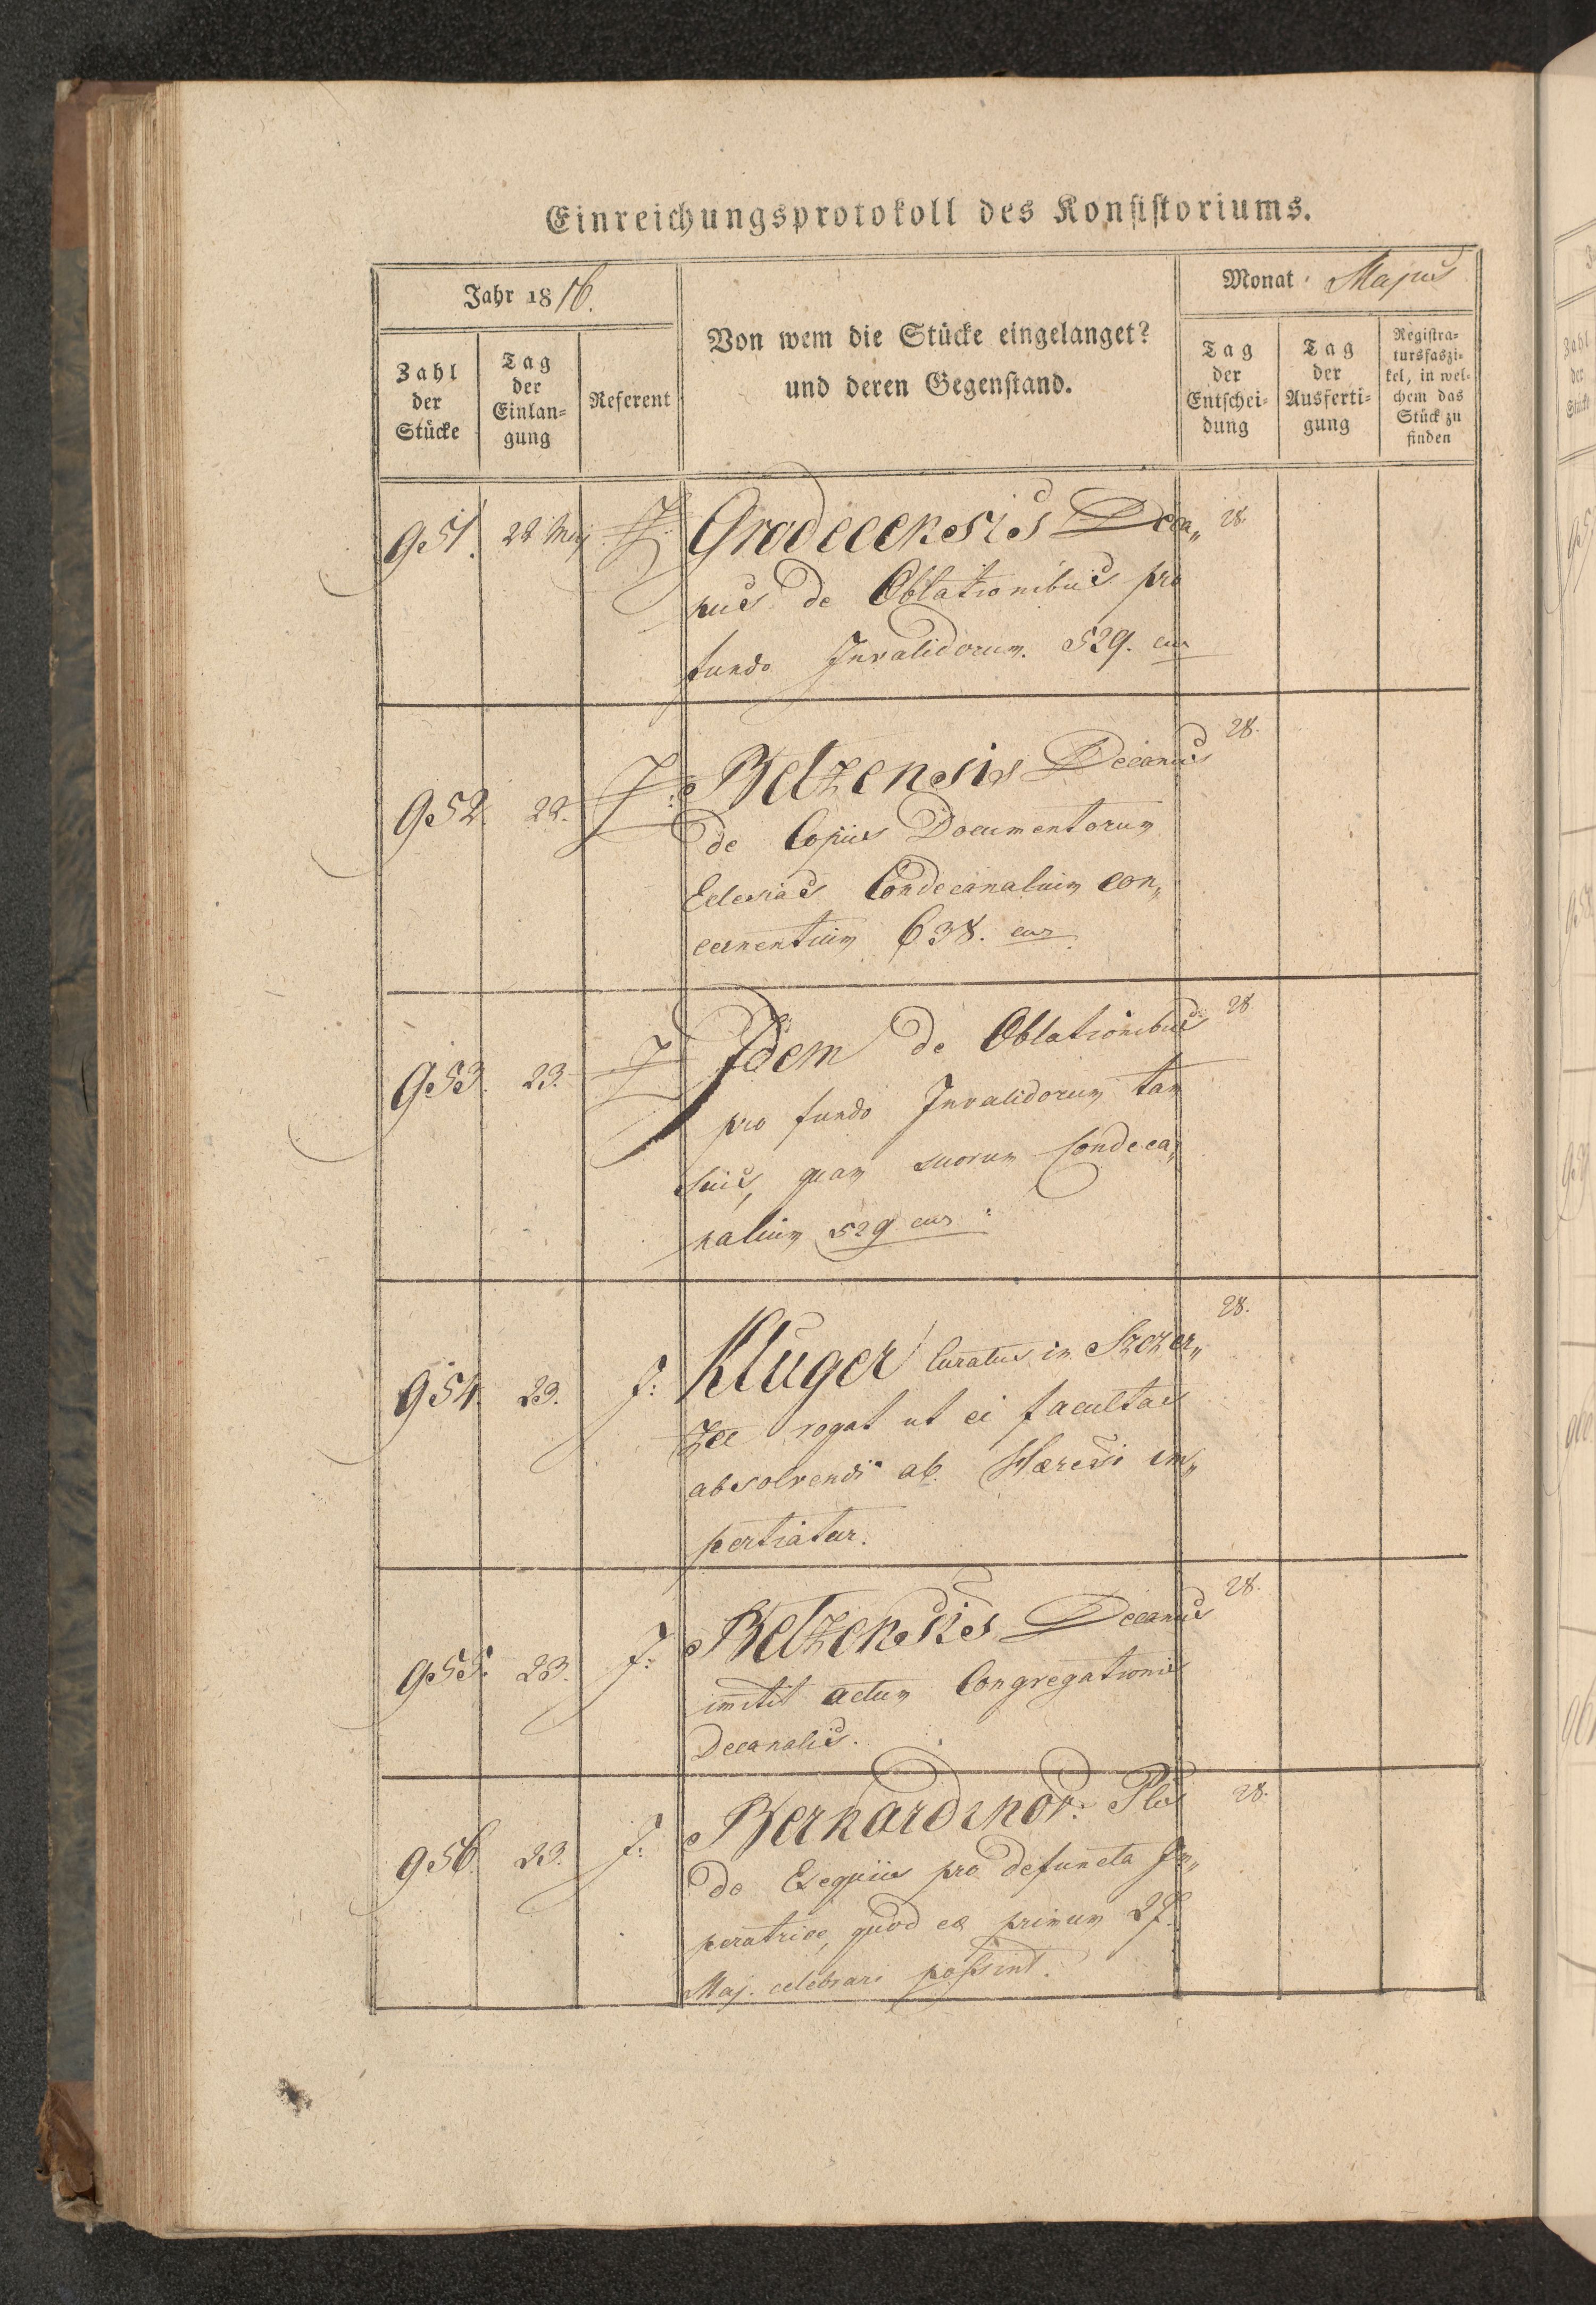 Einreichungsprotokoll des Konsistoriums.
Jahr 1816.
Monat Majus
Zahl der Stücke
Tag der Einlangung
Referent
Von wem die Stücke eingelanget?
und deren Gegenstand.
Tag der Entscheidung
Tag der Ausfertigung
Registratursfaszikel, in welchem das Stück zu finden
951. 22 Maj J: Grodecensis Deca„ 28.
nus de Oblationibus pro
fundo Invalidorum. 529. cur
952. 22. J: Belzensis Decanus 28.
de Copiis Documentorum
Eclesias Condecanaluim con„
cernentium 638. cur
953. 23. J: Idem de Oblationibus 28
pro fundo Invalidorum tam
suis, quam suorum Condeca„
nalium 529 cur
954. 23. J: Kluger Curatus in Szczer„ 28.
zec rogat ut ei facultas
absolvendi ab Hæresi im„
pertiatur.
955. 23. J: Belzensis Decanus 28.
im̄itit actum Congregationis
Decanalis.
956. 23. J: Bernardinor: Plis 28.
de Exequiis pro defuncta Im„
peratrice, quod ea primum 27.
Maj. celebrari possint.